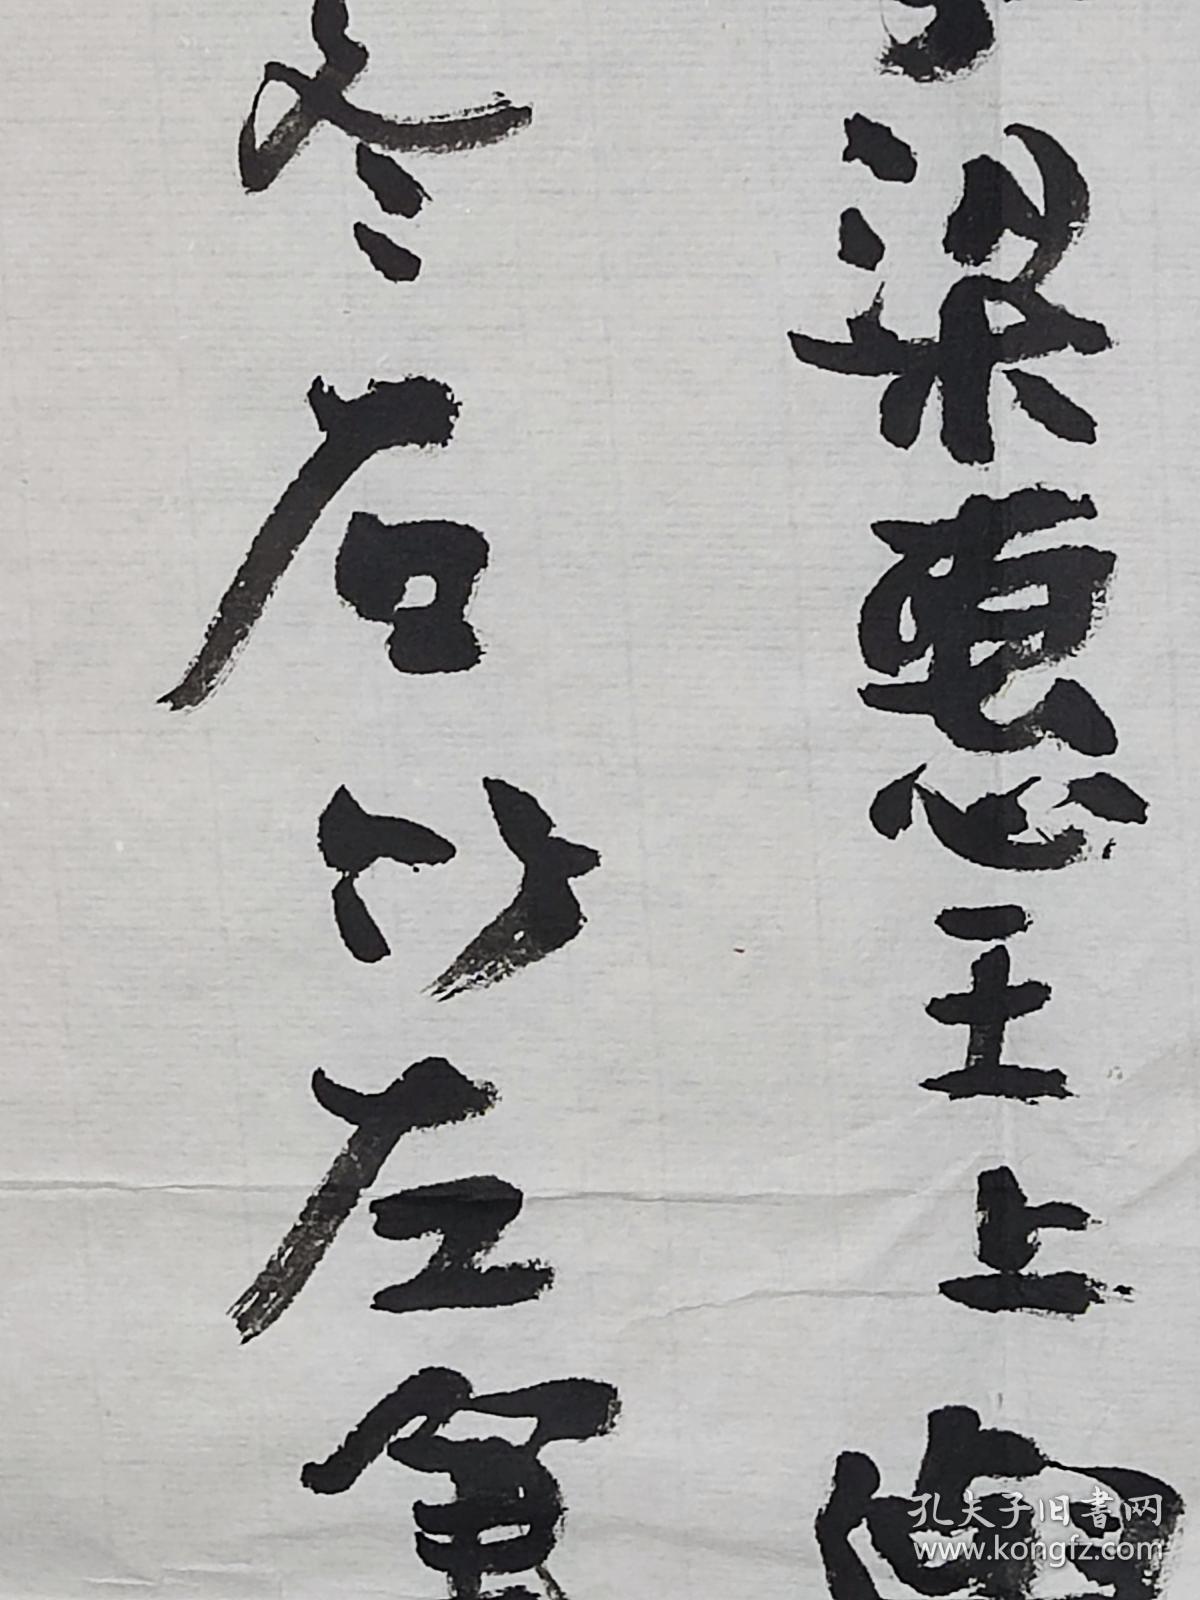 梁惠王上
冬石以左
孔夫子旧書网
www.kongfz.com